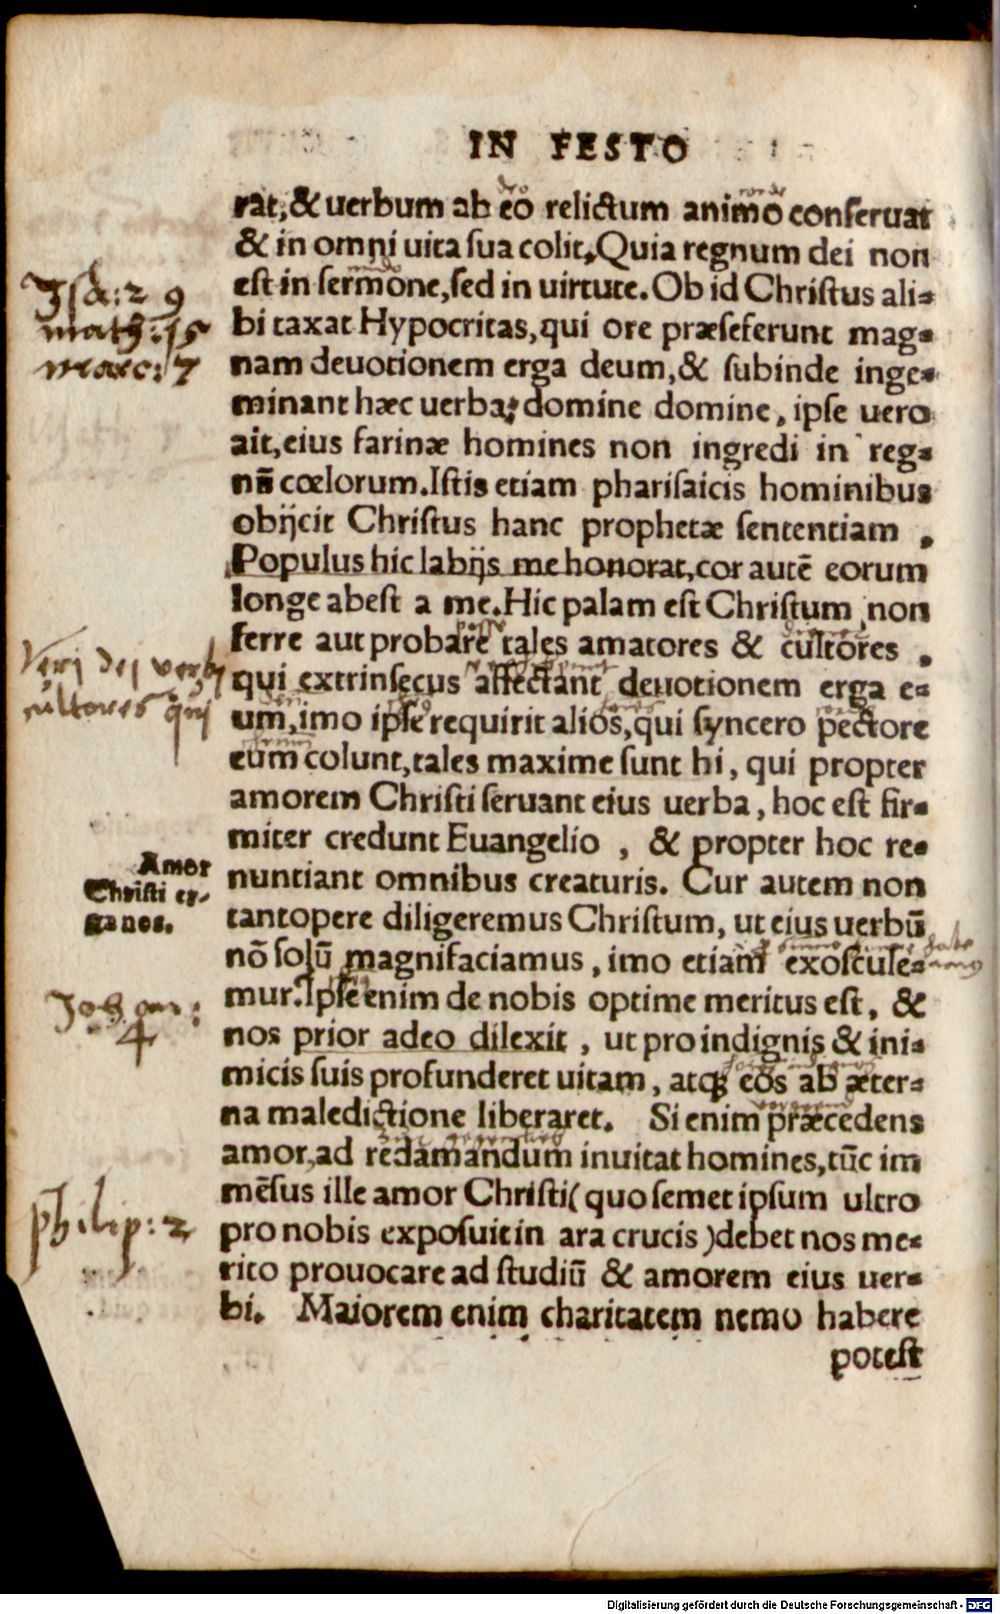 IN FESTO
rat, & uerbum ab eo relictum animo conseruat
& in omni uita sua colit. Quia regnum dei non
est in sermone, sed in uirtute. Ob id Christus ali-
Isa: 29
math: 15
marc: 7
bi taxat Hypocritas, qui ore præseferunt mag-
nam deuotionem erga deum, & subinde inge-
minant hæc uerba: domine domine, ipse uero
ait, eius farinæ homines non ingredi in reg-
nū cœlorum. Istis etiam pharisaicis hominibus
obijcit Christus hanc prophetæ sententiam .
Populus hic labijs me honorat, cor autē eorum
longe abest a me. Hic palam est Christum non
ferre aut probare tales amatores & cultores ,
Veri dei verbi
cultores qui
qui extrinsecus affectant deuotionem erga e-
um, imo ipse requirit alios, qui syncero pectore
eum colunt, tales maxime sunt hi, qui propter
amorem Christi seruant eius uerba, hoc est fir-
miter credunt Euangelio , & propter hoc re-
Amor
Christi er-
ga nos.
nuntiant omnibus creaturis. Cur autem non
tantopere diligeremus Christum, ut eius uerbū
nō solū magnifaciamus, imo etiam exoscule-
mur. Ipse enim de nobis optime meritus est, &
Johan:
4
nos prior adeo dilexit , ut pro indignis & ini-
micis suis profunderet uitam, atq; eos ab æter-
na maledictione liberaret. Si enim præcedens
amor, ad redamandum inuitat homines, tūc im
mēsus ille amor Christi ( quo semet ipsum ultro
philip: 2
pro nobis exposuit in ara crucis ) debet nos me-
rito prouocare ad studiū & amorem eius uer-
bi. Maiorem enim charitatem nemo habere
potest
Digitalisierung gefördert durch die Deutsche Forschungsgemeinschaft - DFG